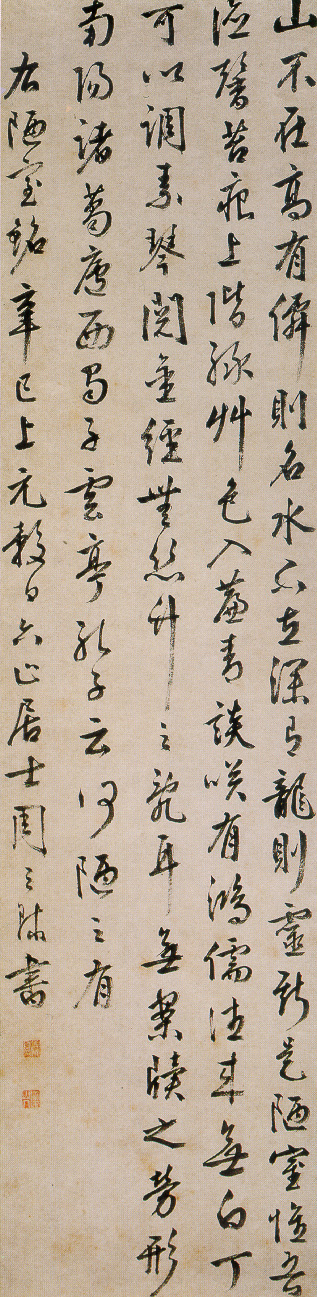 山不在高有僊則名水不在深有龍則靈斯是陋室惟吾
德馨苔痕上階綠艸色入簾青談咲有鴻儒往来無白丁
可以調素琴閱金經無絲竹之亂耳無案牘之勞形
南陽諸葛廬西蜀子雲亭孔子云何陋之有
右陋室銘辛巳上元穀日六止居士周之 書